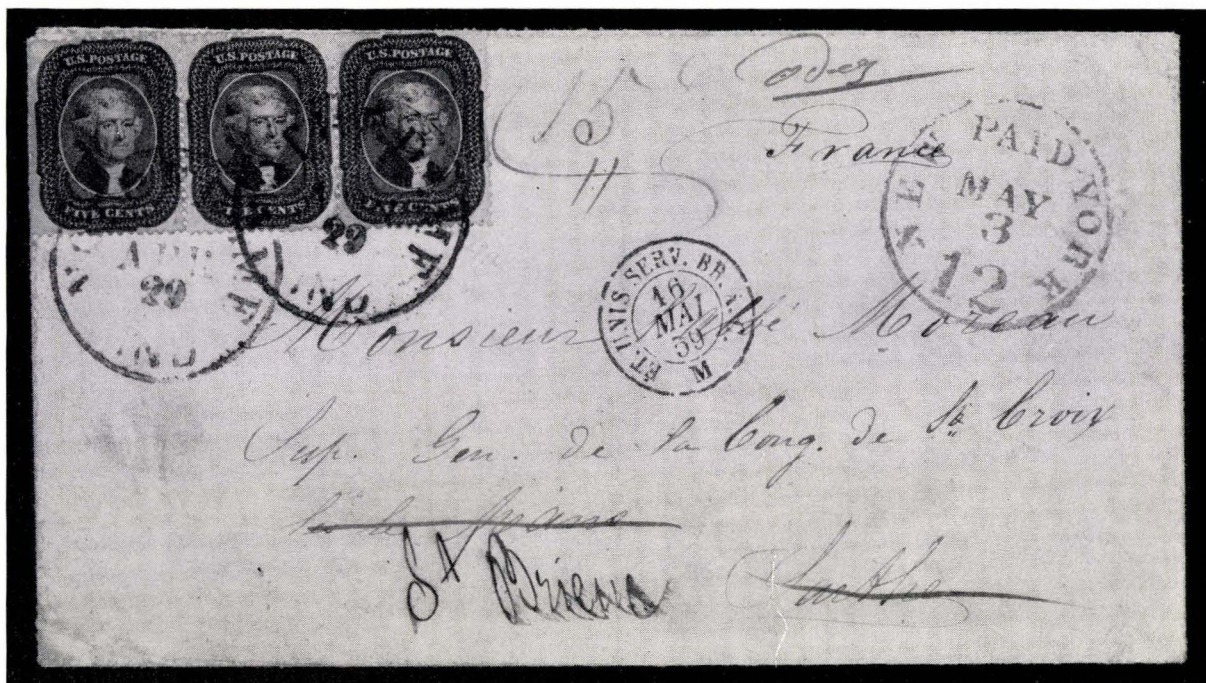 U.S. POSTAGE
FIVE CENTS
U.S. POSTAGE
FIVE CENTS
U.S. POSTAGE
FIVE CENTS
15
France
NEW PAID YORK
MAY
3
12
29
IND.
29
IND.
ÉT. UNIS SERV. BR. A.
16
MAI
59
M
Monsieur Moreau
Sup. Gen. de la Cong. de Ste Croix
St Brieuc
Sarthe